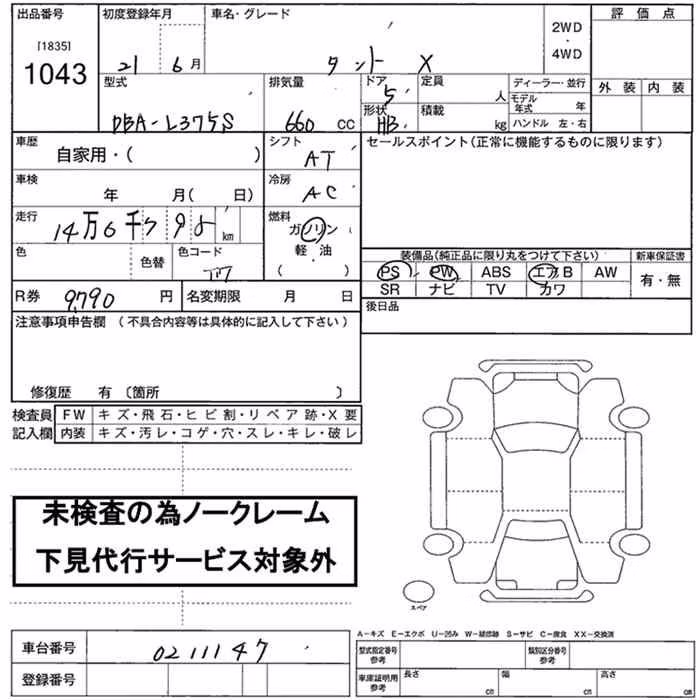 出品番号 初度登録年月 車名・グレード 評価点
[1835]
1043
21 年 6 月 タント X
2WD
・
4WD
外装 内装
型式 排気量 ドア 定員 ディーラー・並行
5 人 モデル年式 年
DBA-L375S 660 cc 形状 積載 ハンドル 左・右
HB kg
車歴 自家用・( ) シフト AT セールスポイント(正常に機能するものに限ります)
車検 年 月( 日) 冷房 AC
走行 14万6千 km 燃料 ガソリン
軽・油
( )
色 色替 色コード
装備品(純正品に限り丸をつけて下さい) 新車保証書
PS PW ABS エアB AW 有・無
SR ナビ TV カワ
R券 9,790 円 名変期限 月 日 後日品
注意事項申告欄 (不具合内容等は具体的に記入して下さい)
修復歴 有 〔箇所 〕
検査員 FW キズ・飛石・ヒビ割・リペア跡・X要
記入欄 内装 キズ・汚レ・コゲ・穴・スレ・キレ・破レ
未検査の為ノークレーム
下見代行サービス対象外
スペア
A-キズ E-エクボ U-凹み W-補修跡 S-サビ C-腐食 XX-交換済
車台番号 0211147 型式指定番号 参考 類別区分番号 参考
登録番号 車庫証明用 参考 長さ cm 幅 cm 高さ cm